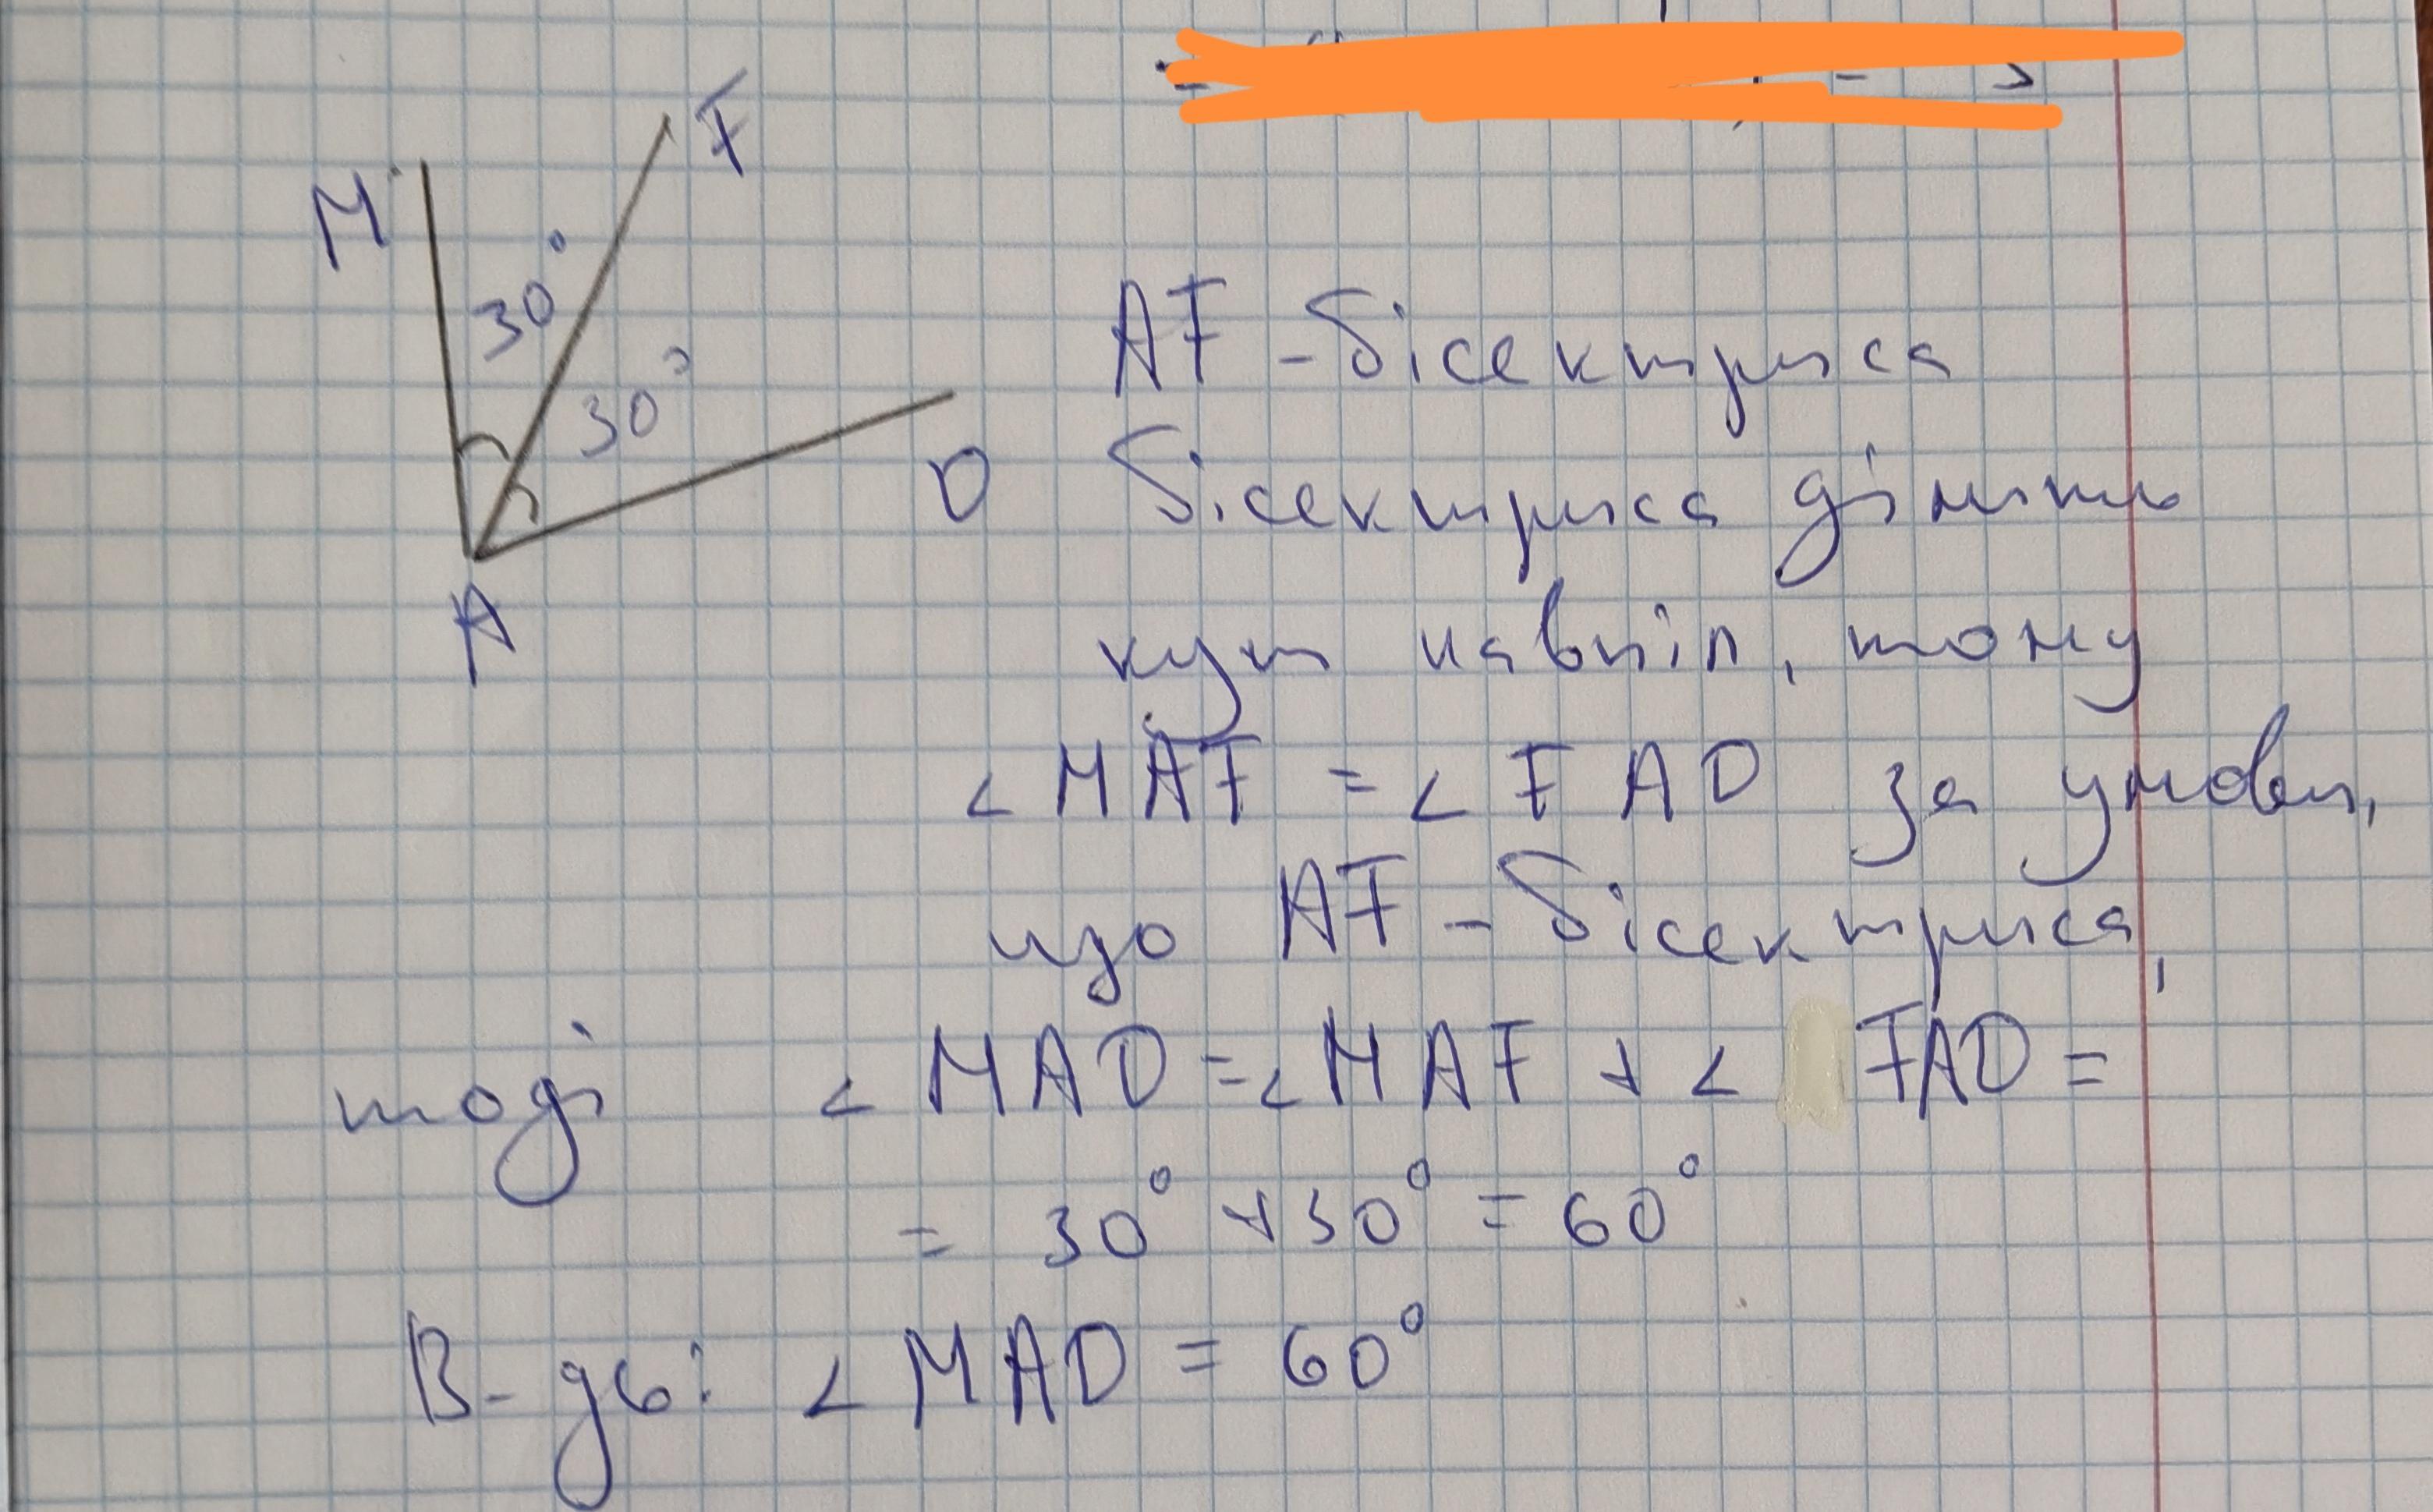 M
F
30°
30°
D
A
AF - бісектриса
бісектриса ділить
кут навпіл, тому
∠ MAF = ∠ FAD за умови,
що AF - бісектриса,
тоді ∠ MAD = ∠ MAF + ∠ FAD =
= 30° + 30° = 60°
В-дь: ∠ MAD = 60°